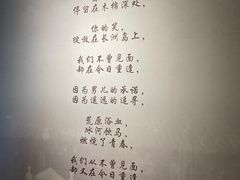 停留在木棉深处，
你的笑，
绽放在长洲岛上，
我们不曾见面，
却在今日重逢，
因为男儿的承诺，
因为遥远的追寻，
荒原浴血，
冰河饮马，
燃烧了青春，
我们从不曾见面，
却又在今日重逢，